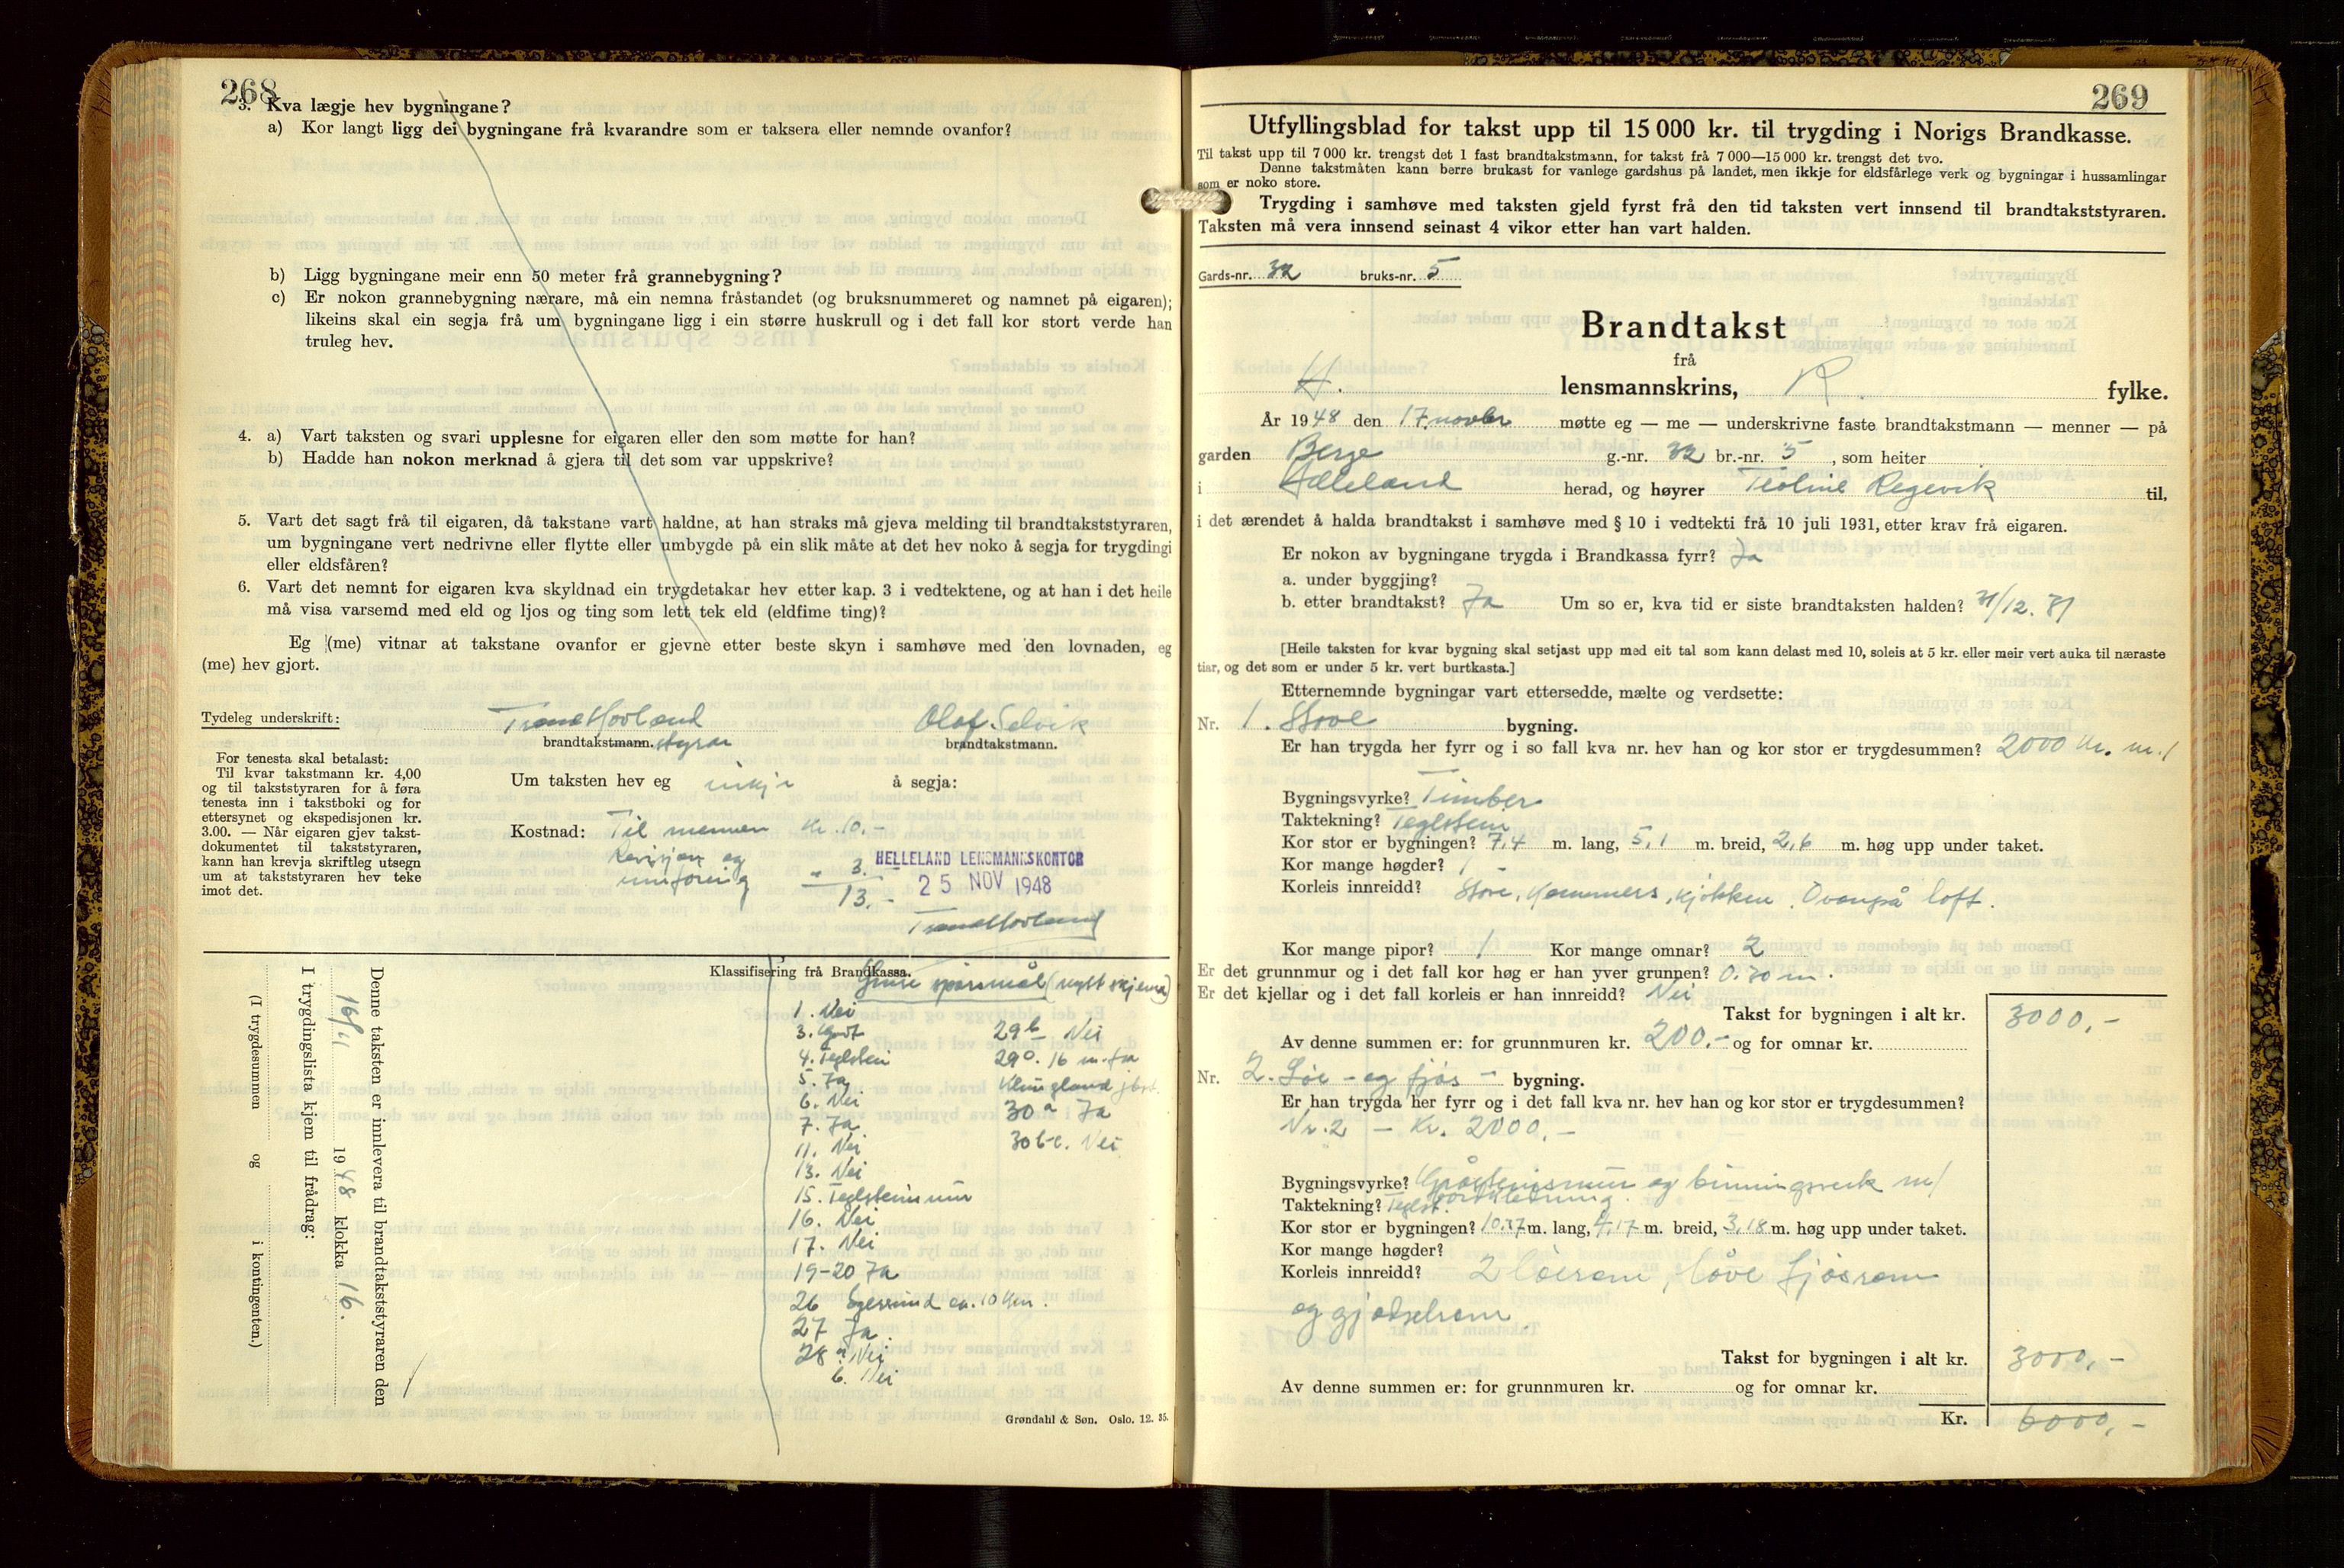 268
3. Kva lægje hev bygningane?
a) Kor langt ligg dei bygningane frå kvarandre som er taksera eller nemnde ovanfor?
b) Ligg bygningane meir enn 50 meter frå grannebygning?
c) Er nokon grannebygning nærare, må ein nemna fråstandet (og bruksnummeret og namnet på eigaren);
likeins skal ein segja frå um bygningane ligg i ein større huskrull og i det fall kor stort verde han
truleg hev.
4. a) Vart taksten og svari upplesne for eigaren eller den som møtte for han?
b) Hadde han nokon merknad å gjera til det som var uppskrive?
5. Vart det sagt frå til eigaren, då takstane vart haldne, at han straks må gjeva melding til brandtakststyraren,
um bygningane vert nedrivne eller flytte eller umbygde på ein slik måte at det hev noko å segja for trygdingi
eller eldsfåren?
6. Vart det nemnt for eigaren kva skyldnad ein trygdetakar hev etter kap. 3 i vedtektene, og at han i det heile
må visa varsemd med eld og ljos og ting som lett tek eld (eldfime ting)?
Eg (me) vitnar at takstane ovanfor er gjevne etter beste skyn i samhøve med den lovnaden, eg
(me) hev gjort.
Tydeleg underskrift: Hovland Olaf Selvik
brandtakstmann. styrar brandtakstmann.
For tenesta skal betalast:
Til kvar takstmann kr. 4,00
og til takststyraren for å føra
tenesta inn i takstboki og for
ettersynet og ekspedisjonen kr.
3.00. — Når eigaren gjev takst-
dokumentet til takststyraren,
kann han krevja skriftleg utsegn
um at takststyraren hev teke
imot det.
Um taksten hev eg inkje å segja:
Kostnad: Til mennen kr. 10.-
Revisjon og
innføring " 3.-
13.-
HELLELAND LENSMANNSKONTOR
25 NOV 1948
Hovland
Denne taksten er innlevera til brandtakststyraren den
16/11 1948 klokka 16.
I trygdingslista kjem til frådrag:
(I trygdesummen og i kontingenten.)
Klassifisering frå Brandkassa.
Ymse spørsmål (nytt skjema)
1. Nei
3. Godt
4. Teglstein
5. Ja
6. Nei
7. Ja
11. Nei
13. Nei
15. Teglsteinmur
16. Nei
17. Nei
19-20 Ja
26 Egersund ca. 10 km.
27 Ja.
28 a Nei
b. Nei
29 b Nei
29 c. 16 m. fra
Klungland
30 a Ja
30 b-c. Nei
Grøndahl & Søn. Oslo. 12. 35.
269
Utfyllingsblad for takst upp til 15 000 kr. til trygding i Norigs Brandkasse.
Til takst upp til 7 000 kr. trengst det 1 fast brandtakstmann, for takst frå 7 000—15 000 kr. trengst det tvo.
Denne takstmåten kann berre brukast for vanlege gardshus på landet, men ikkje for eldsfårlege verk og bygningar i hussamlingar
som er noko store.
Trygding i samhøve med taksten gjeld fyrst frå den tid taksten vert innsend til brandtakststyraren.
Taksten må vera innsend seinast 4 vikor etter han vart halden.
Gards-nr. 32 bruks-nr. 5
Brandtakst
frå
H. lensmannskrins, R. fylke.
År 1948 den 17. novbr møtte eg — me — underskrivne faste brandtakstmann — menner — på
garden Berge g.-nr. 32 br.-nr. 5, som heiter
i Helleland herad, og høyrer Teoline Regevik til,
i det ærendet å halda brandtakst i samhøve med § 10 i vedtekti frå 10 juli 1931, etter krav frå eigaren.
Er nokon av bygningane trygda i Brandkassa fyrr? Ja
a. under byggjing?
b. etter brandtakst? Ja Um so er, kva tid er siste brandtaksten halden? /12.
[Heile taksten for kvar bygning skal setjast upp med eit tal som kann delast med 10, soleis at 5 kr. eller meir vert auka til næraste
tiar, og det som er under 5 kr. vert burtkasta.]
Etternemnde bygningar vart ettersedde, mælte og verdsette:
Nr. 1. Stove bygning.
Er han trygda her fyrr og i so fall kva nr. hev han og kor stor er trygdesummen? 2000 kr. nr. 1
Bygningsvyrke? Timber
Taktekning? Teglstein
Kor stor er bygningen? 7,4 m. lang, 5,1 m. breid, 2,6 m. høg upp under taket.
Kor mange høgder? 1
Korleis innreidd? Stove, kammers, kjøkken. Ovanpå loft.
Kor mange pipor? 1 Kor mange omnar? 2
Er det grunnmur og i det fall kor høg er han yver grunnen? 0.30 m.
Er det kjellar og i det fall korleis er han innreidd? Nei
Takst for bygningen i alt kr. 3000,-
Av denne summen er: for grunnmuren kr. 200.- og for omnar kr.
Nr. 2. Løe- og fjøs- bygning.
Er han trygda her fyrr og i det fall kva nr. hev han og kor stor er trygdesummen?
Nr. 2 - Kr. 2000.-
Bygningsvyrke? Gråsteinsmur og binningsverk m/
bordkledning.
Taktekning? Teglst.
Kor stor er bygningen? 10.17 m. lang, 4,17 m. breid, 3,18 m. høg upp under taket.
Kor mange høgder?
Korleis innreidd? 2 løerom, låve fjøsrom
og gjødselrom
Takst for bygningen i alt kr. 3000,-
Av denne summen er: for grunnmuren kr. og for omnar kr.
Kr. 6000,-